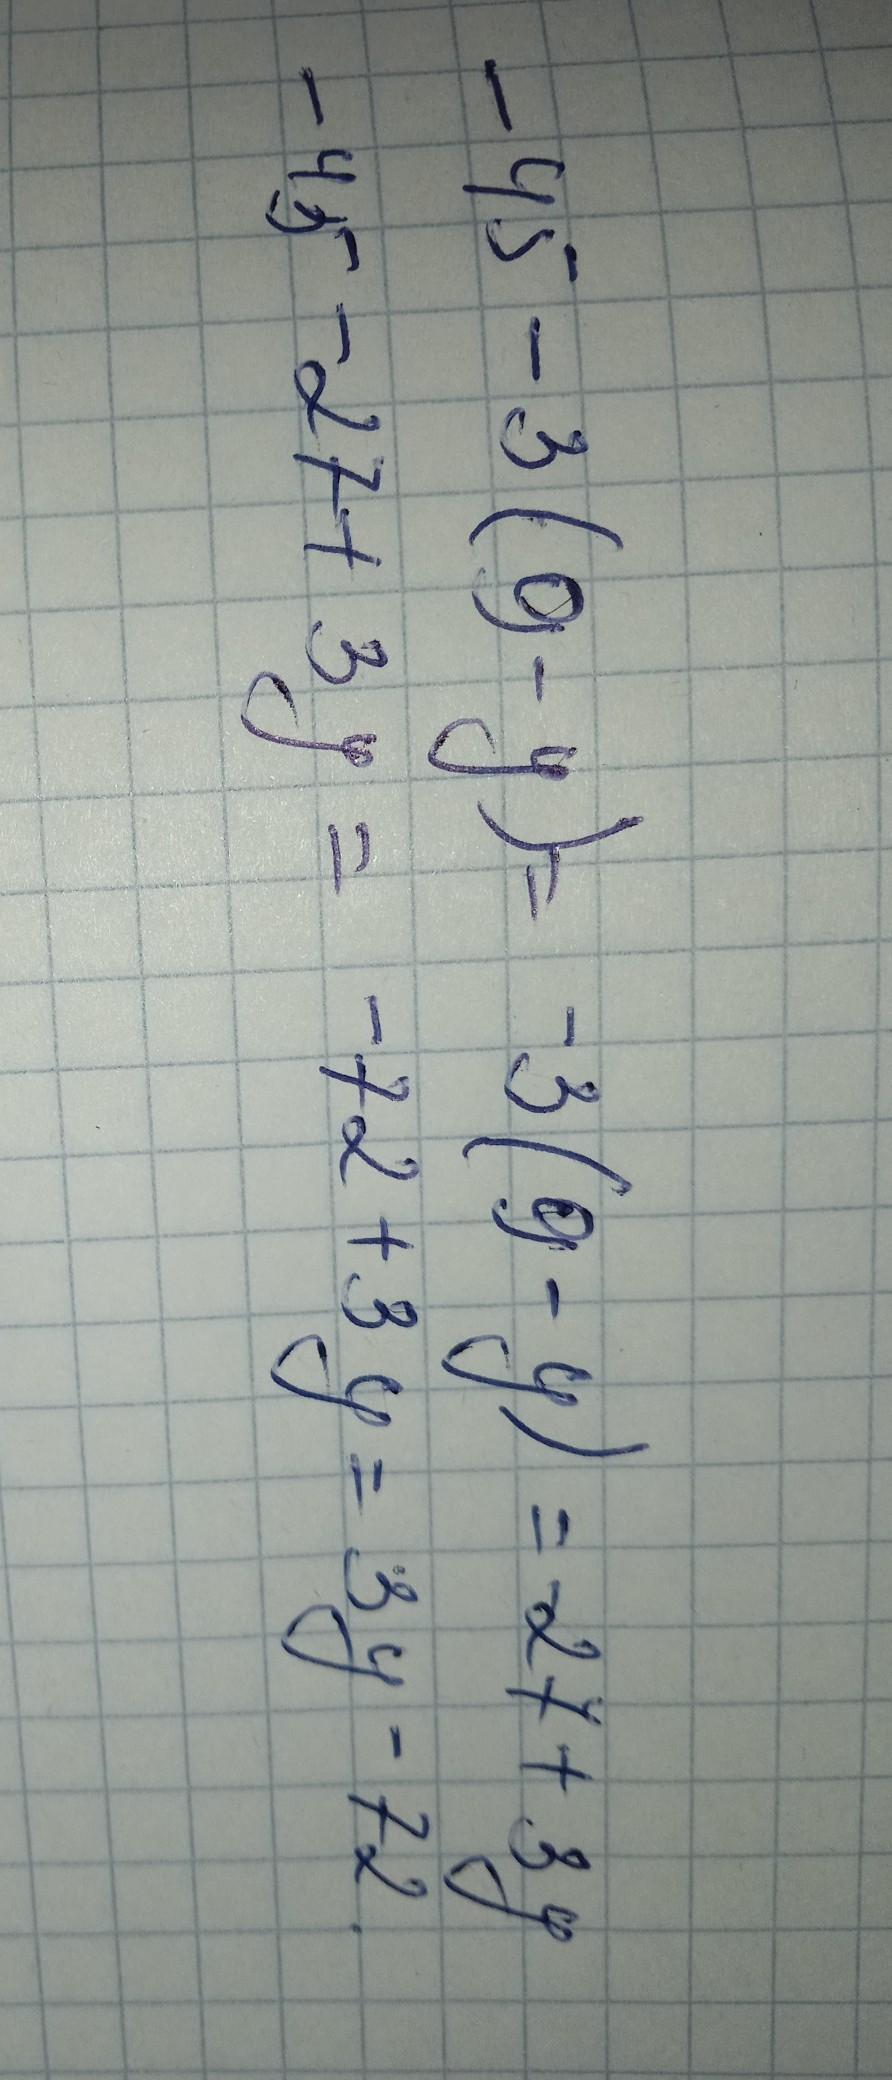 -45-3(9-y)= -3(9-y)=-27+3y
-45-27+3y= -72+3y=3y-72.